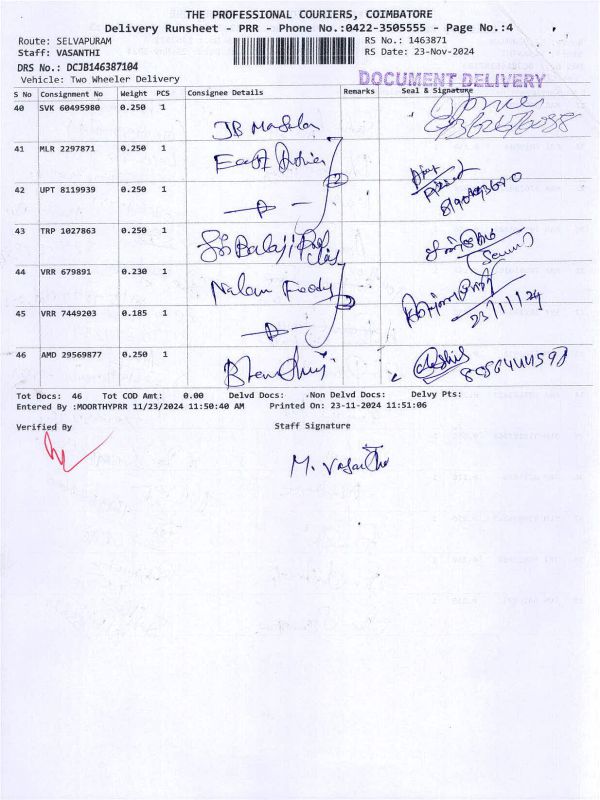 THE PROFESSIONAL COURIERS, COIMBATORE
Delivery Runsheet - PRR - Phone No.:0422-3505555 - Page No.:4
Route: SELVAPURAM RS No.: 1463871
Staff: VASANTHI RS Date: 23-Nov-2024
DRS No.: DCJB146387104
Vehicle: Two Wheeler Delivery DOCUMENT DELIVERY
S No Consignment No Weight PCS Consignee Details Remarks Seal & Signature
40 SVK 60495980 0.250 1
JB
41 MLR 2297871 0.250 1
East
42 UPT 8119939 0.250 1
43 TRP 1027863 0.250 1
Sri Balaji
44 VRR 679891 0.230 1
Nalam Foody
23/11/24
45 VRR 7449203 0.185 1
46 AMD 29569877 0.250 1
Tot Docs: 46 Tot COD Amt: 0.00 Delvd Docs: Non Delvd Docs: Delvy Pts:
Entered By :MOORTHYPRR 11/23/2024 11:50:40 AM Printed On: 23-11-2024 11:51:06
Verified By Staff Signature
M. Vasantha